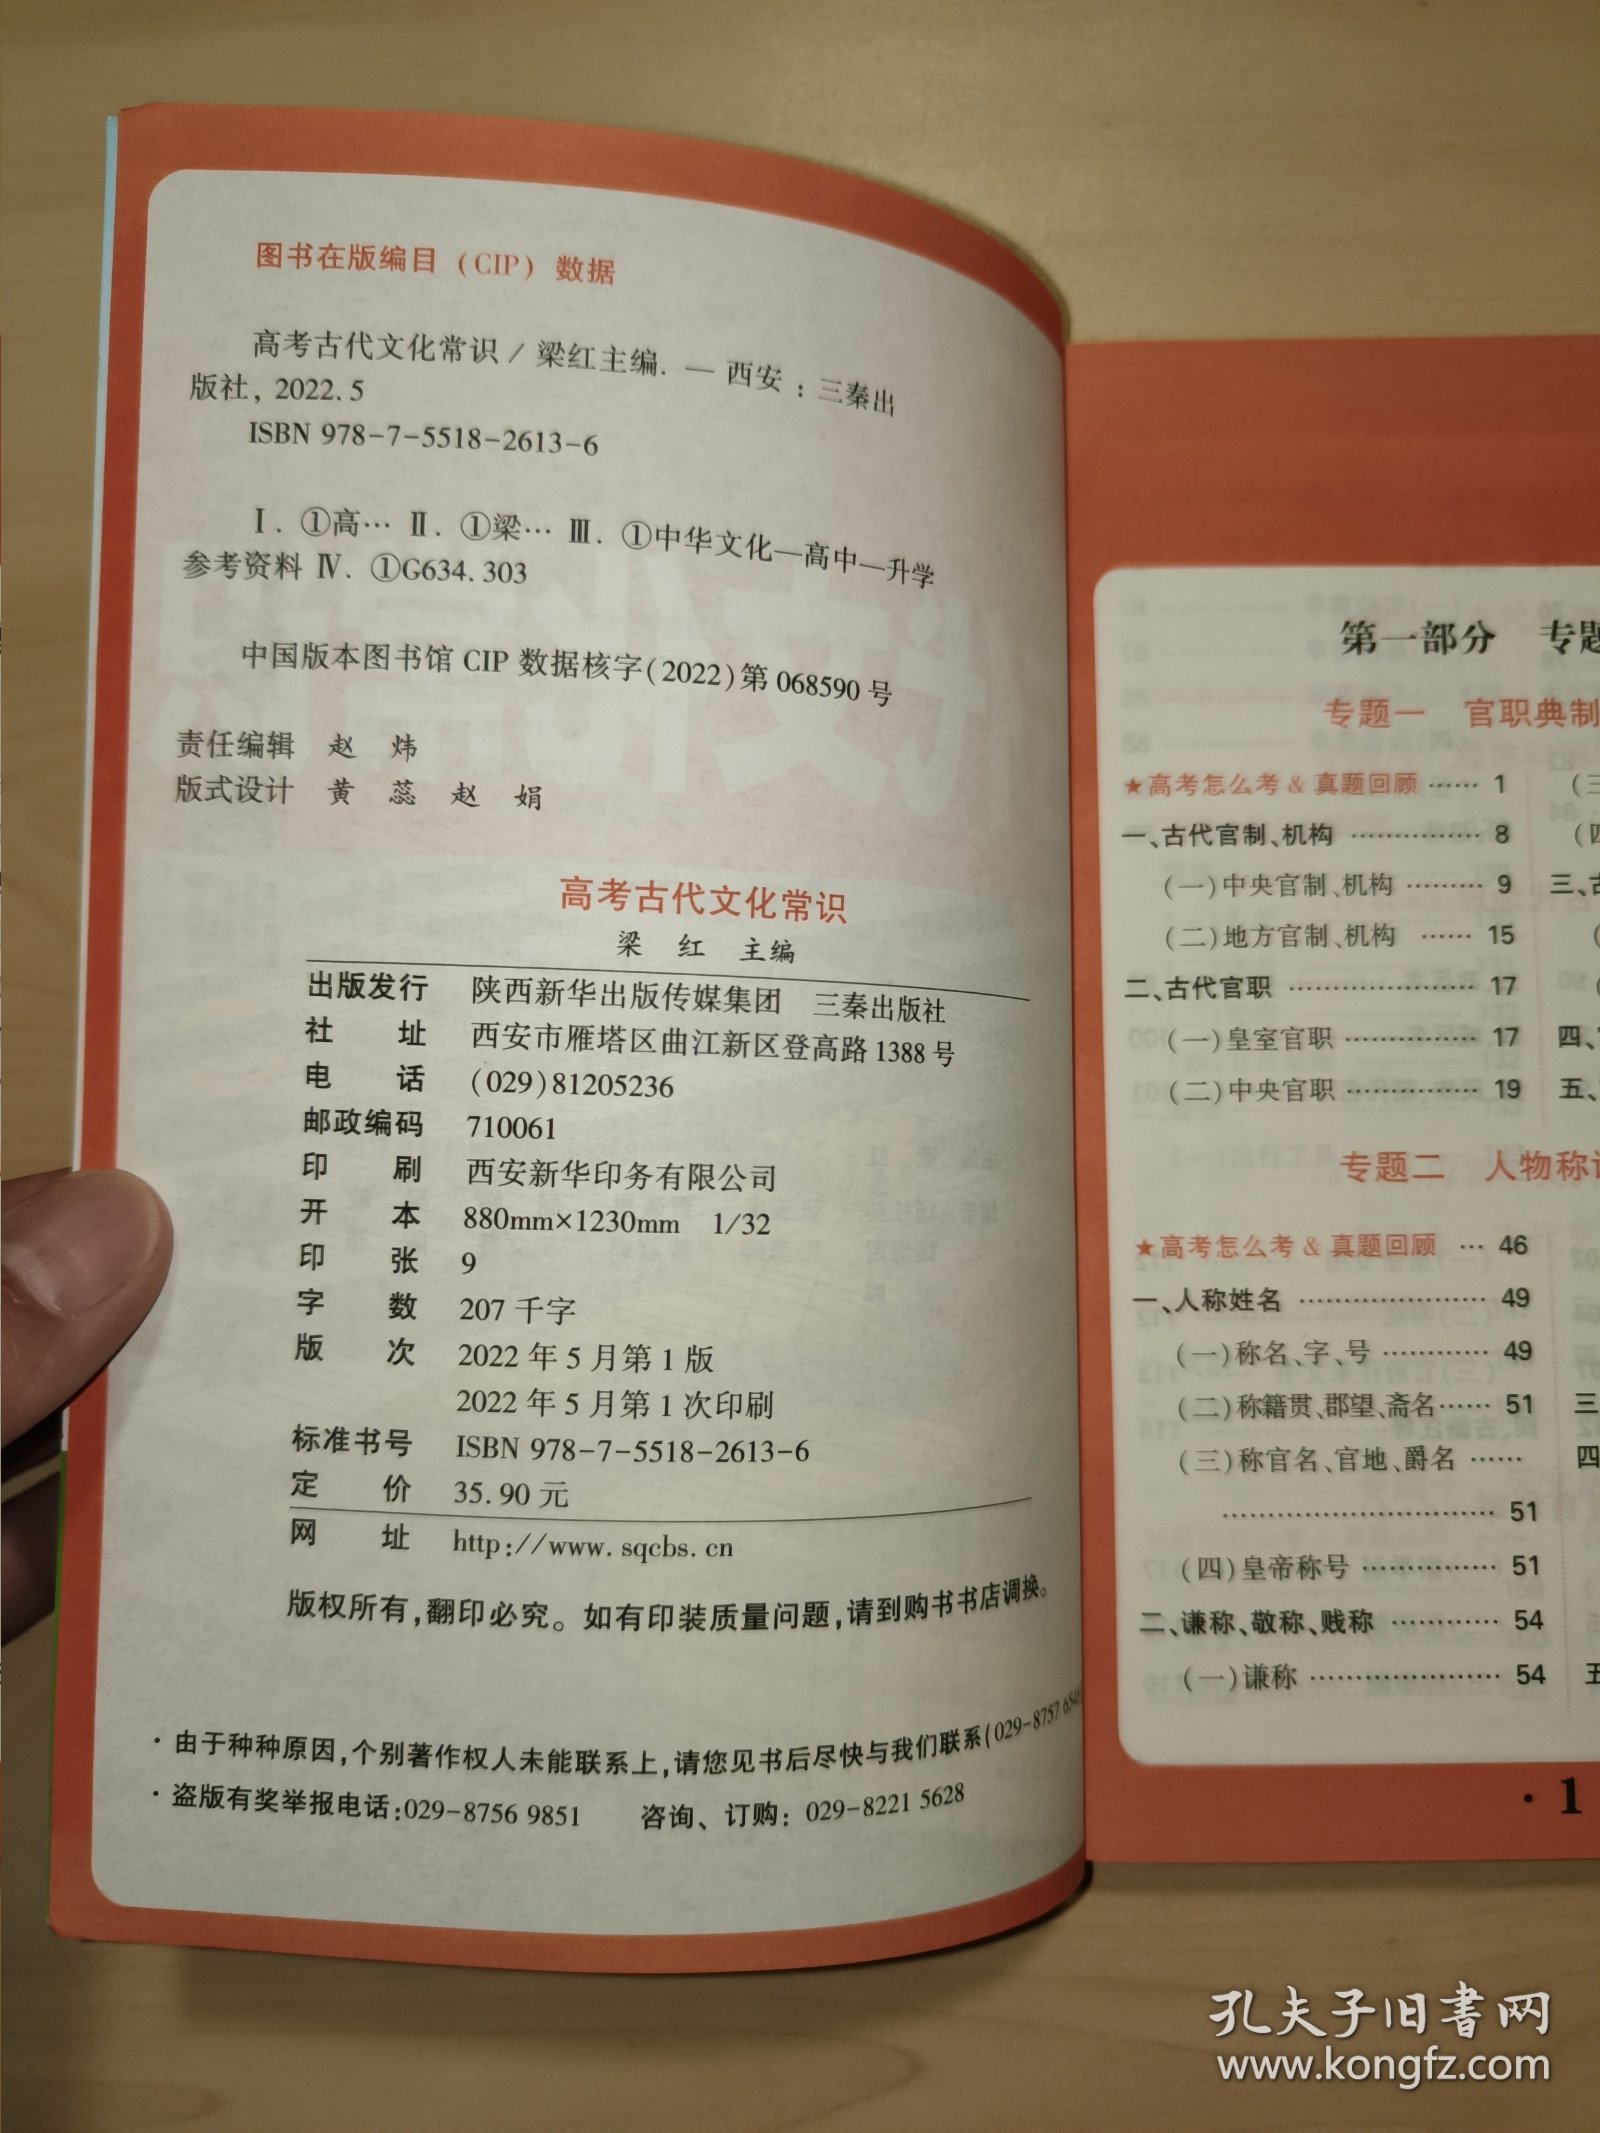 图书在版编目（CIP）数据
高考古代文化常识 / 梁红主编. — 西安：三秦出
版社，2022.5
ISBN 978-7-5518-2613-6
Ⅰ. ①高… Ⅱ. ①梁… Ⅲ. ①中华文化—高中—升学
参考资料 Ⅳ. ①G634.303
中国版本图书馆 CIP 数据核字(2022)第 068590 号
责任编辑 赵 炜
版式设计 黄 蕊 赵 娟
高考古代文化常识
梁 红 主编
出版发行 陕西新华出版传媒集团 三秦出版社
社 址 西安市雁塔区曲江新区登高路 1388 号
电 话 (029)81205236
邮政编码 710061
印 刷 西安新华印务有限公司
开 本 880mm×1230mm 1/32
印 张 9
字 数 207 千字
版 次 2022 年 5 月第 1 版
2022 年 5 月第 1 次印刷
标准书号 ISBN 978-7-5518-2613-6
定 价 35.90 元
网 址 http://www.sqcbs.cn
版权所有，翻印必究。如有印装质量问题，请到购书书店调换。
· 由于种种原因，个别著作权人未能联系上，请您见书后尽快与我们联系(029-8757
· 盗版有奖举报电话：029-8756 9851 咨询、订购：029-8221 5628
第一部分 专题
专题一 官职典制
★高考怎么考 & 真题回顾 …… 1
一、古代官制、机构 …………… 8
(一)中央官制、机构 ……… 9
(二)地方官制、机构 …… 15
二、古代官职 ………………… 17
(一)皇室官职 …………… 17
(二)中央官职 …………… 19
(三
(四
三、古
(
四、
五、
专题二 人物称
★高考怎么考 & 真题回顾 … 46
一、人称姓名 ………………… 49
(一)称名、字、号 ………… 49
(二)称籍贯、郡望、斋名…… 51
(三)称官名、官地、爵名 ……
………………………… 51
(四)皇帝称号 …………… 51
二、谦称、敬称、贱称 ………… 54
(一)谦称 ………………… 54
三
四
五
· 1
孔夫子旧书网
www.kongfz.com